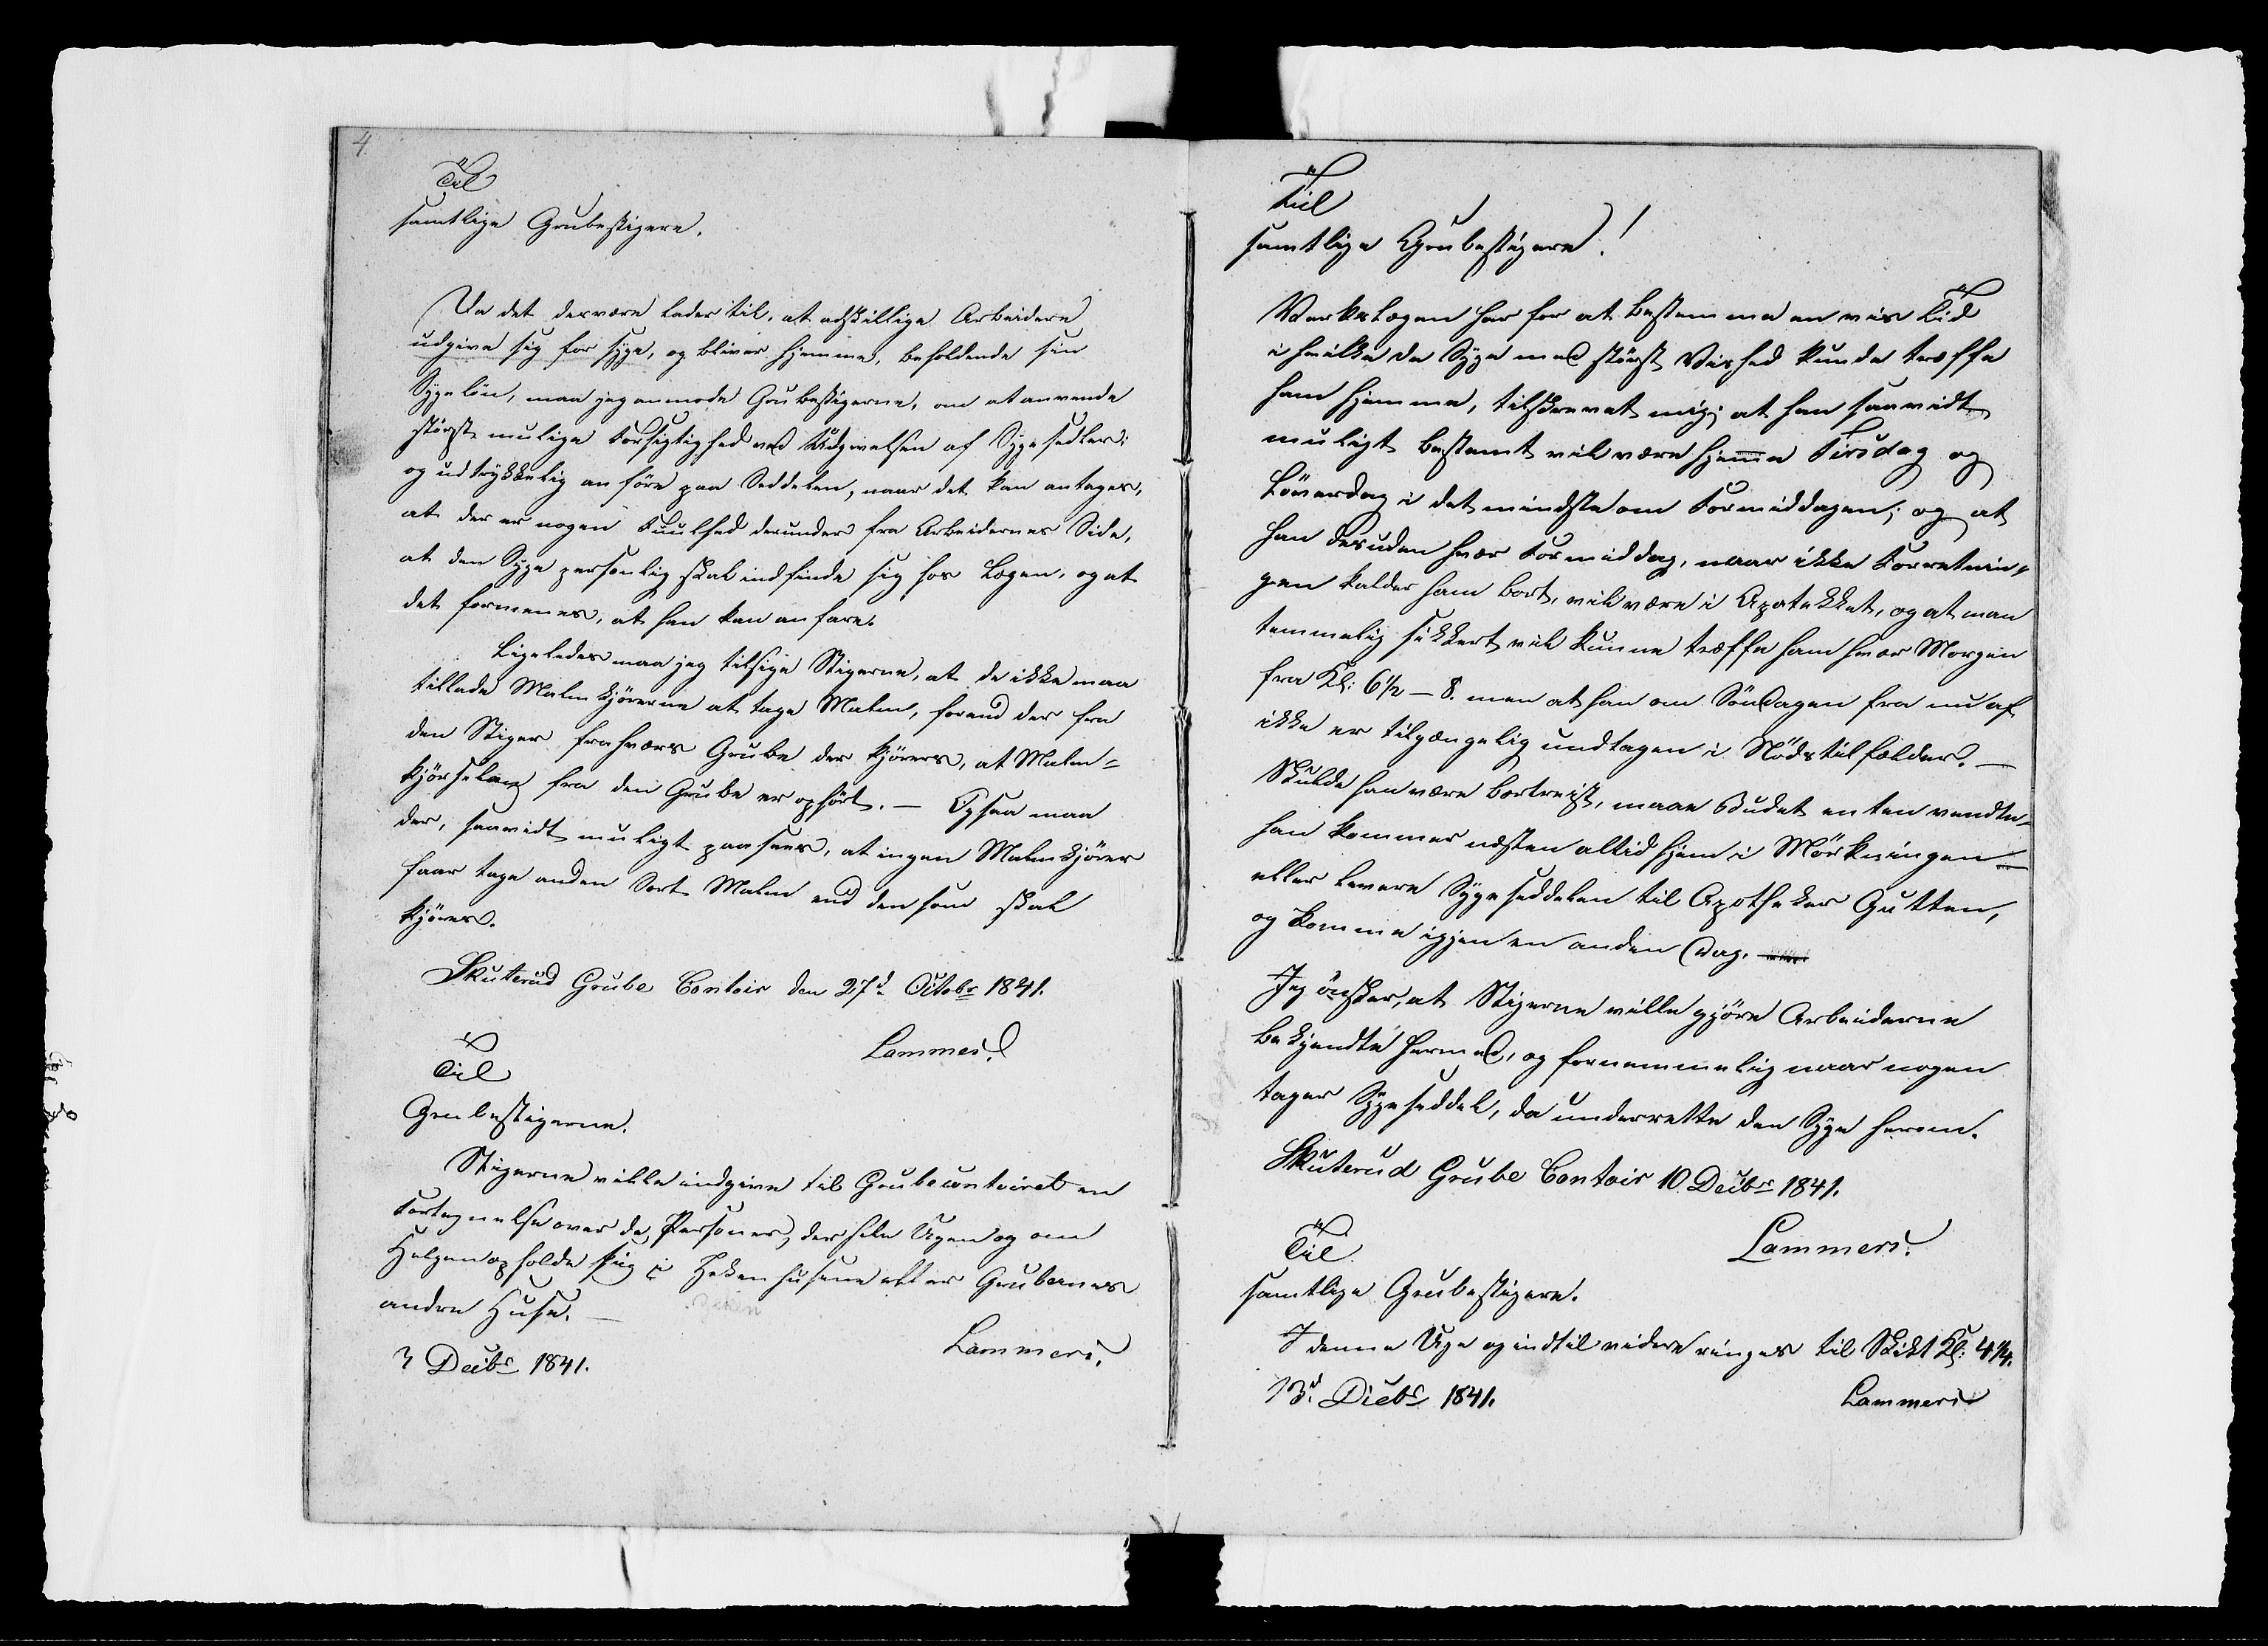 4.
Til
samtlige Grubestigere.
Da det desvære lader til, at adskillige Arbeidere
udgive sig for syge, og bliver hjemme, beholdende sin
Sygelön, maa jeg anmode Grubestigerne, om at anvende
störst mulige Forsigtighed ved Udgivelsen af Sygesedler;
og udtrykkelig anföre paa Seddelen, naar det kan antages,
at der er nogen Fuulhed derunder fra Arbeidernes Side,
at den Syge personlig skal indfinde sig hos Lægen, og at
det formenes, at han kan anfare.
Ligeledes maa jeg tilsige Stigerne, at de ikke maa
tillade Malmkjörerne at tage Malm, forend der fra
den Stiger fra hvers Grube der kjöres, at Malm-
kjörselen fra den Grube er ophört. — Ogsaa maa
der, saavidt muligt paasees, at ingen Malmkjörer
faar tage anden Sort Malm end den som skal
kjöres.
Skuterud Grube Contoir den 27d Octobr 1841.
Lammers.
Til
Grubestigerne.
Stigerne ville indgive til Grubecontoiret en
Fortegnelse over de Personer, der hele Ugen og om
Helgen opholde sig i Hekenhusene eller Grubernes
andre Huse. —
3 Decbr 1841.
Lammers.
Til
samtlige Grubestigere!
Værkslægen har for at bestemme en vis Tid
i hvilke de Syge med störst Vished kunde træffe
ham hjemme, tilskrevet mig; at han saavidt
muligt bestemt vil være hjemme Tirsdag og
Löverdag i det mindste om Formiddagen; og at
han desuden hver Formiddag, naar ikke Forretnin-
gen kalder ham bort, vil være i Apotekket, og at man
temmelig sikkert vil kunne træffe ham hver Morgen
fra Kl: 6½ — 8. men at han om Söndagen fra nu af
ikke er tilgængelig undtagen i Nödstilfælder. —
Skulde han være bortreist, maae Budet enten vendte-
han kommer næsten altid hjem i Mörkningen —
eller levere Sygeseddelen til Apotheker Gutten,
og komme igjen en anden Dag.
Jeg önsker, at Stigerne ville gjöre Arbeiderne
bekjendte hermed, og fornemmelig naar nogen
tager Sygeseddel, da underrette den Syge herom.
Skuterud Grube Contoir 10 Decbr 1841.
Lammers.
Til
samtlige Grubestigere.
I denne Uge og indtil videre ringes til Skikt Kl: 4¼.
13d Decbr 1841.
Lammers